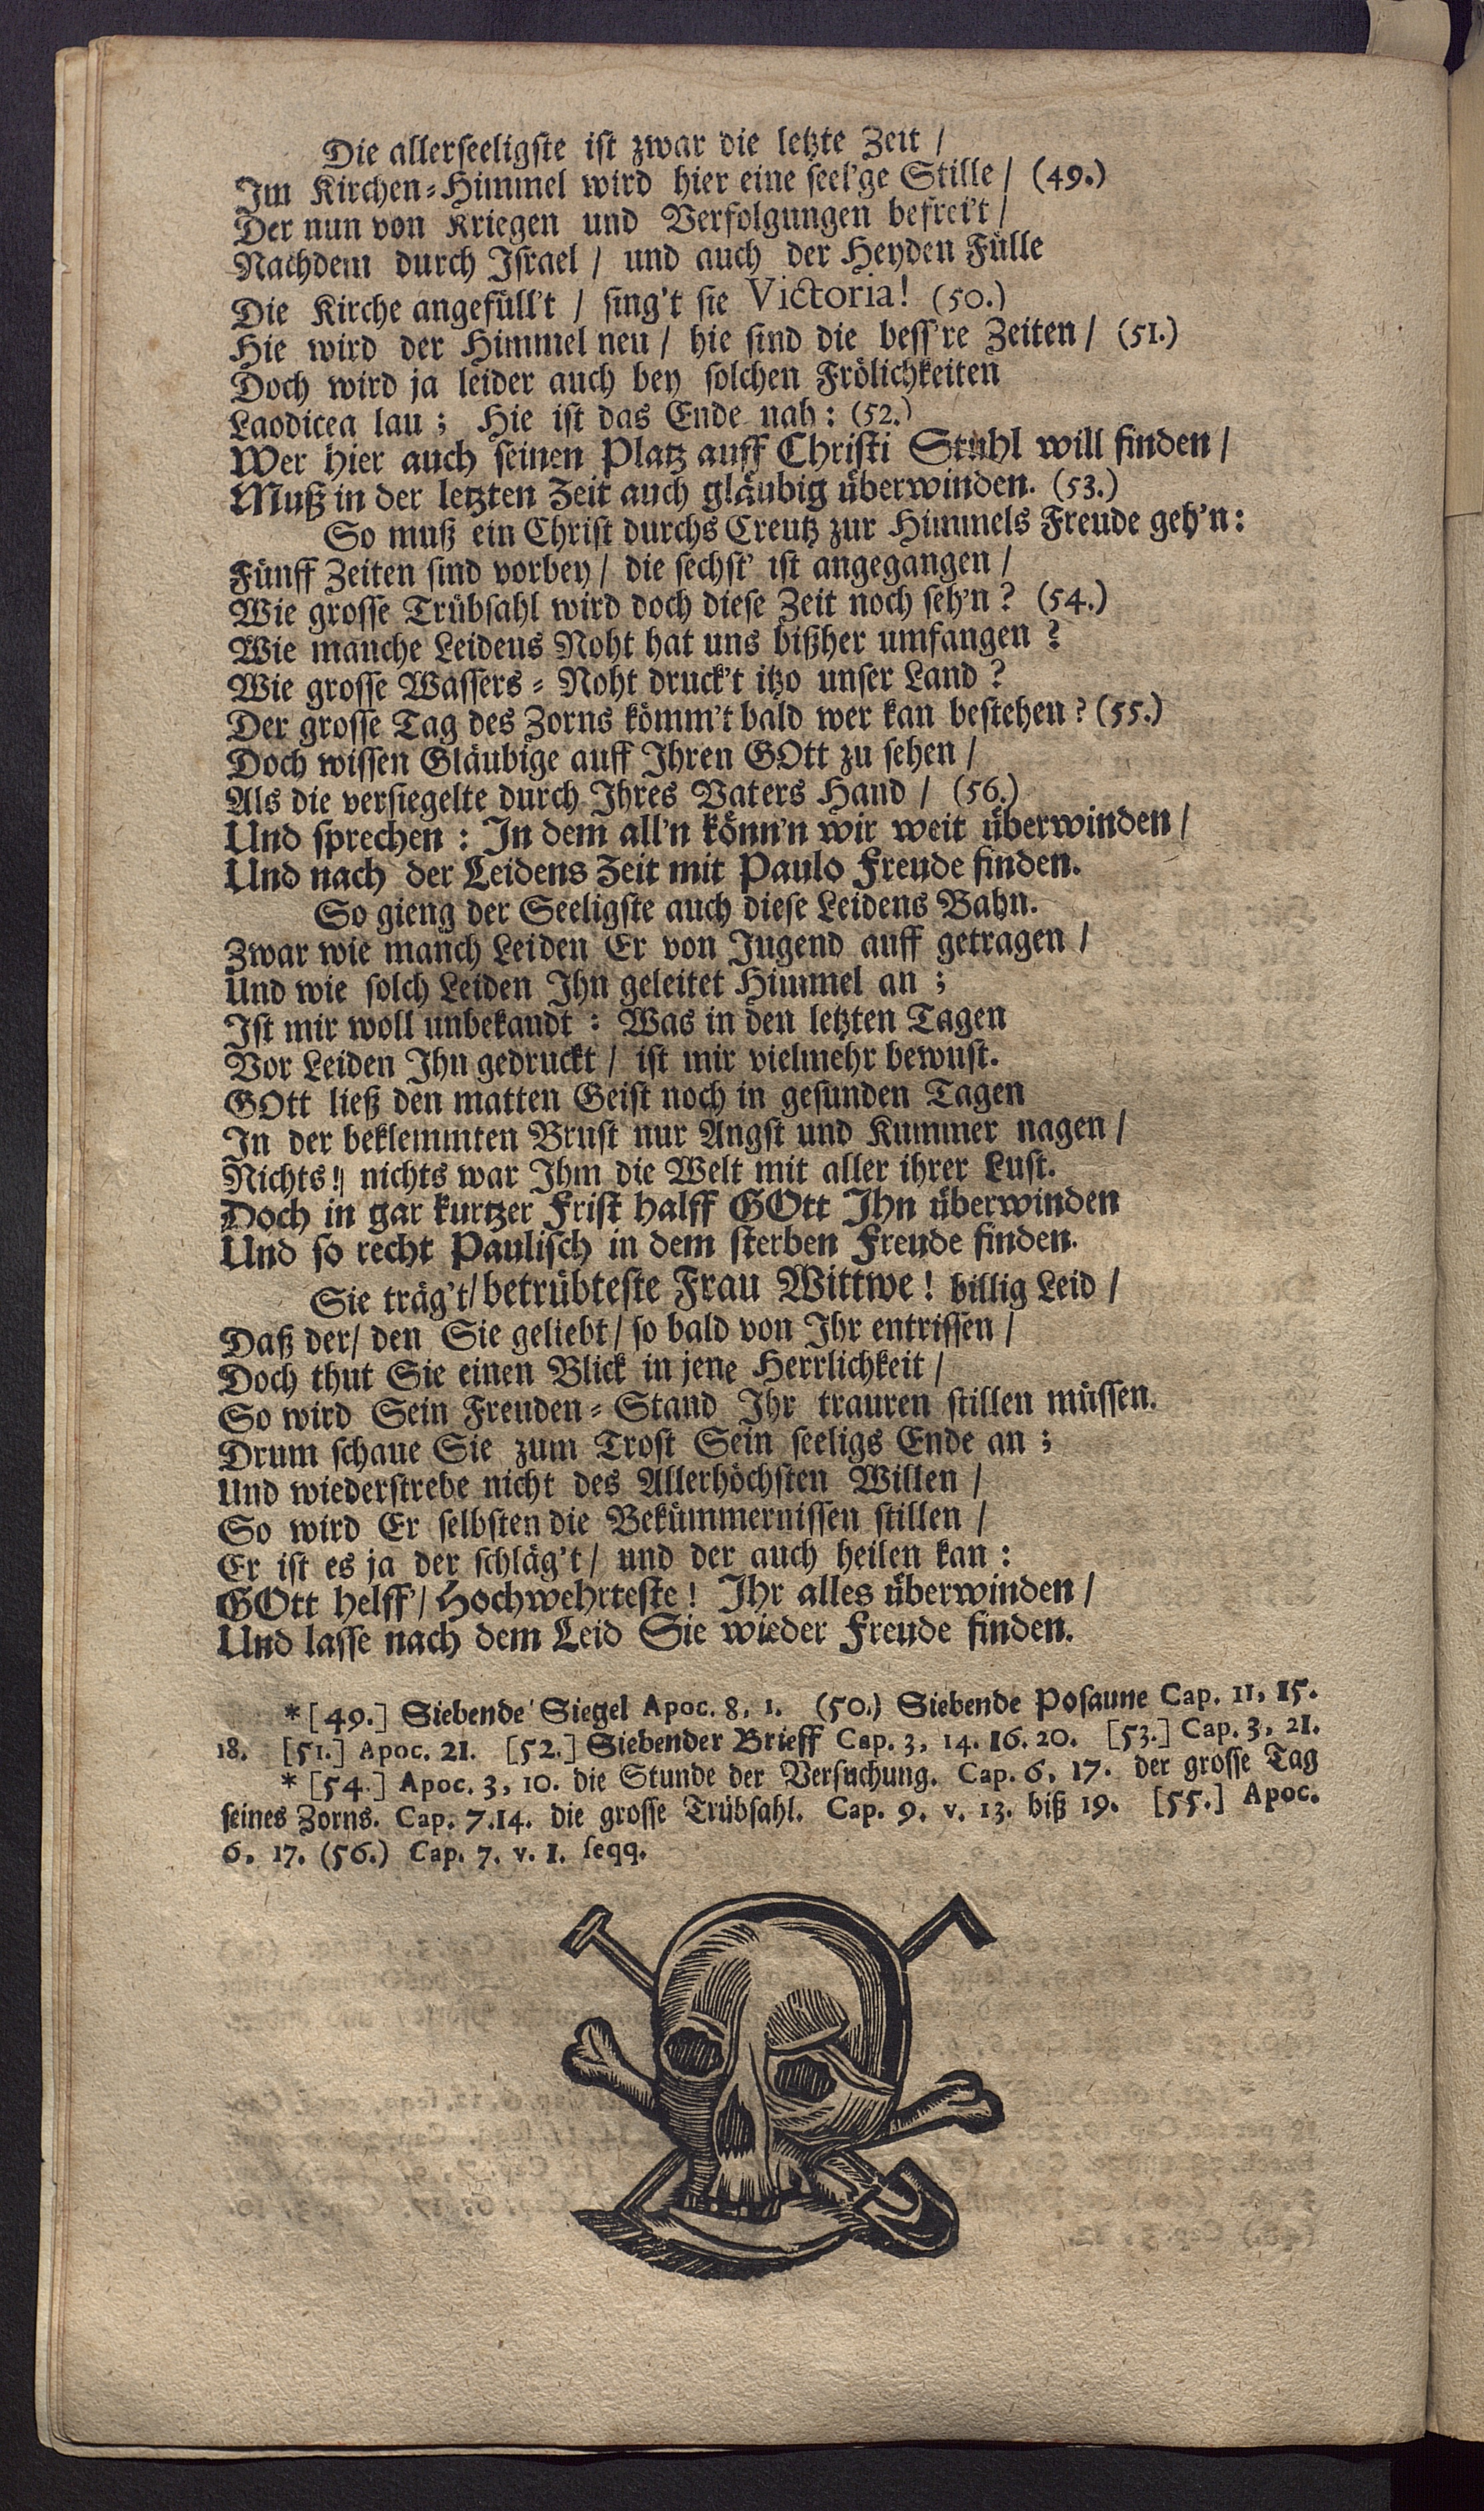 Die allerseeligste ist zwar die letzte Zeit /
Im Kirchen-Himmel wird hier eine seel'ge Stille / (49.)
Der nun von Kriegen und Verfolgungen befrei't /
Nachdem durch Israel / und auch der Heyden Fülle
Die Kirche angefüll't / sing't sie Victoria! (50.)
Hie wird der Himmel neu / hie sind die bess're Zeiten / (51.)
Doch wird ja leider auch bey solchen Frölichkeiten
Laodicea lau; Hie ist das Ende nah: (52.)
Wer hier auch seinen Platz auff Christi Stuhl will finden /
Muß in der letzten Zeit auch gläubig überwinden. (53.)
So muß ein Christ durchs Creutz zur Himmels Freude geh'n:
Fünff Zeiten sind vorbey / die sechst' ist angegangen /
Wie grosse Trübsahl wird doch diese Zeit noch seh'n? (54.)
Wie manche Leidens Noht hat uns bißher umfangen?
Wie grosse Wassers-Noht druck't itzo unser Land?
Der grosse Tag des Zorns kömm't bald wer kan bestehen? (55.)
Doch wissen Gläubige auff Ihren GOtt zu sehen /
Als die versiegelte durch Ihres Vaters Hand / (56.)
Und sprechen: In dem all'n könn'n wir weit überwinden /
Und nach der Leidens Zeit mit Paulo Freude finden.
So gieng der Seeligste auch diese Leidens Bahn.
Zwar wie manch Leiden Er von Jugend auff getragen /
Und wie solch Leiden Ihn geleitet Himmel an;
Ist mir woll unbekandt: Was in den letzten Tagen
Vor Leiden Ihn gedruckt / ist mir vielmehr bewust.
GOtt ließ den matten Geist noch in gesunden Tagen
In der beklemmten Brust nur Angst und Kummer nagen /
Nichts! nichts war Ihm die Welt mit aller ihrer Lust.
Doch in gar kurtzer Frist halff GOtt Ihn überwinden
Und so recht Paulisch in dem sterben Freude finden.
Sie träg't / betrübteste Frau Wittwe! billig Leid /
Daß der / den Sie geliebt / so bald von Ihr entrissen /
Doch thut Sie einen Blick in jene Herrlichkeit /
So wird Sein Freuden-Stand Ihr trauren stillen müssen.
Drum schaue Sie zum Trost Sein seeligs Ende an;
Und wiederstrebe nicht des Allerhöchsten Willen /
So wird Er selbsten die Bekümmernissen stillen /
Er ist es ja der schläg't / und der auch heilen kan:
GOtt helff' / Hochwehrteste! Ihr alles überwinden /
Und lasse nach dem Leid Sie wieder Freude finden.
* [49.] Siebende Siegel Apoc. 8, 1. (50.) Siebende Posaune Cap. 11, 15.
18. [51.] Apoc. 21. [52.] Siebender Brieff Cap. 3, 14. 16. 20. [53.] Cap. 3, 21.
* [54.] Apoc. 3, 10. die Stunde der Versuchung. Cap. 6, 17. der grosse Tag
seines Zorns. Cap. 7. 14. die grosse Trübsahl. Cap. 9. v. 13. biß 19. [55.] Apoc.
6, 17. (56.) Cap. 7. v. 1. seqq.